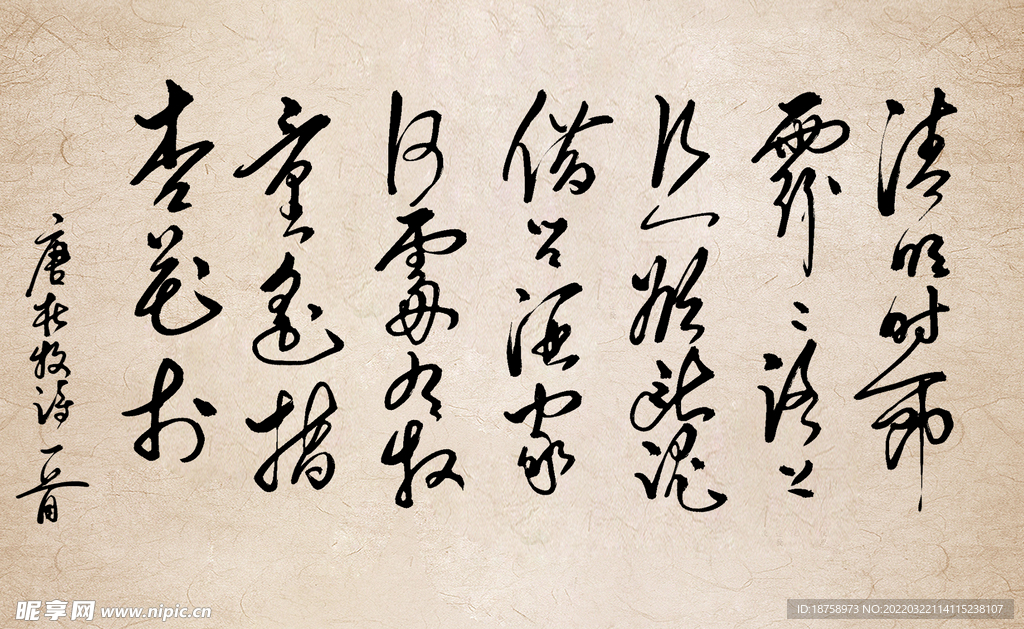 清明时節
雨纷〻路上
行人欲断魂
借问酒家
何處有牧
童遥指
杏花村
唐杜牧诗一首
昵享网 www.nipic.cn
ID:18758973 NO:20220322114115238107